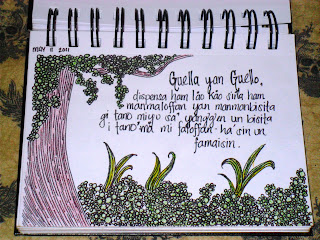 MAY 11 2011
Guella yan Guello,
dispensa ham låo kao siña ham
manmaloffan yan manmanbisita
gi tano miyo sa' yanggen un bisita
i tano'-ma mi faloffan-ha' sin un
famaisin.